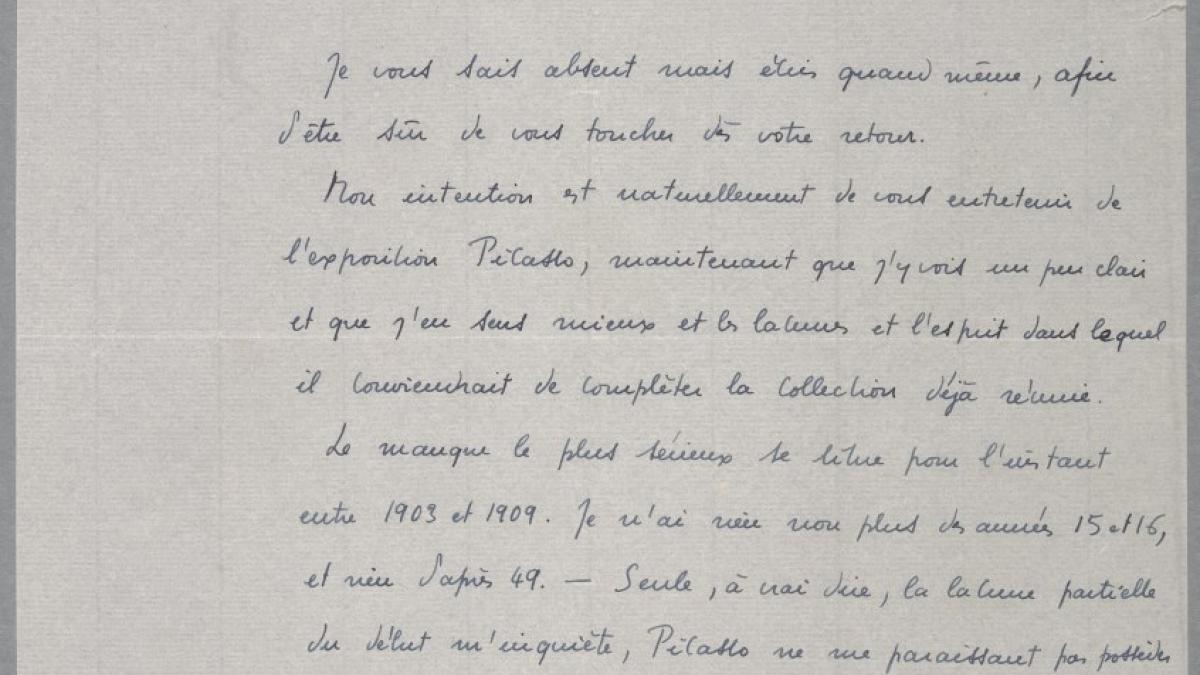 Je vous sais absent mais écris quand même, afin
d'être sûr de vous toucher dès votre retour.
Mon intention est naturellement de vous entretenir de
l'exposition Picasso, maintenant que j'y vois un peu clair
et que j'en sens mieux et les lacunes et l'esprit dans lequel
il conviendrait de compléter la collection déjà réunie.
Le manque le plus sérieux se situe pour l'instant
entre 1903 et 1909. Je n'ai rien non plus des années 15 et 16,
et rien d'après 49. — Seule, à vrai dire, la lacune partielle
du début m'inquiète, Picasso ne me paraissant pas posséder